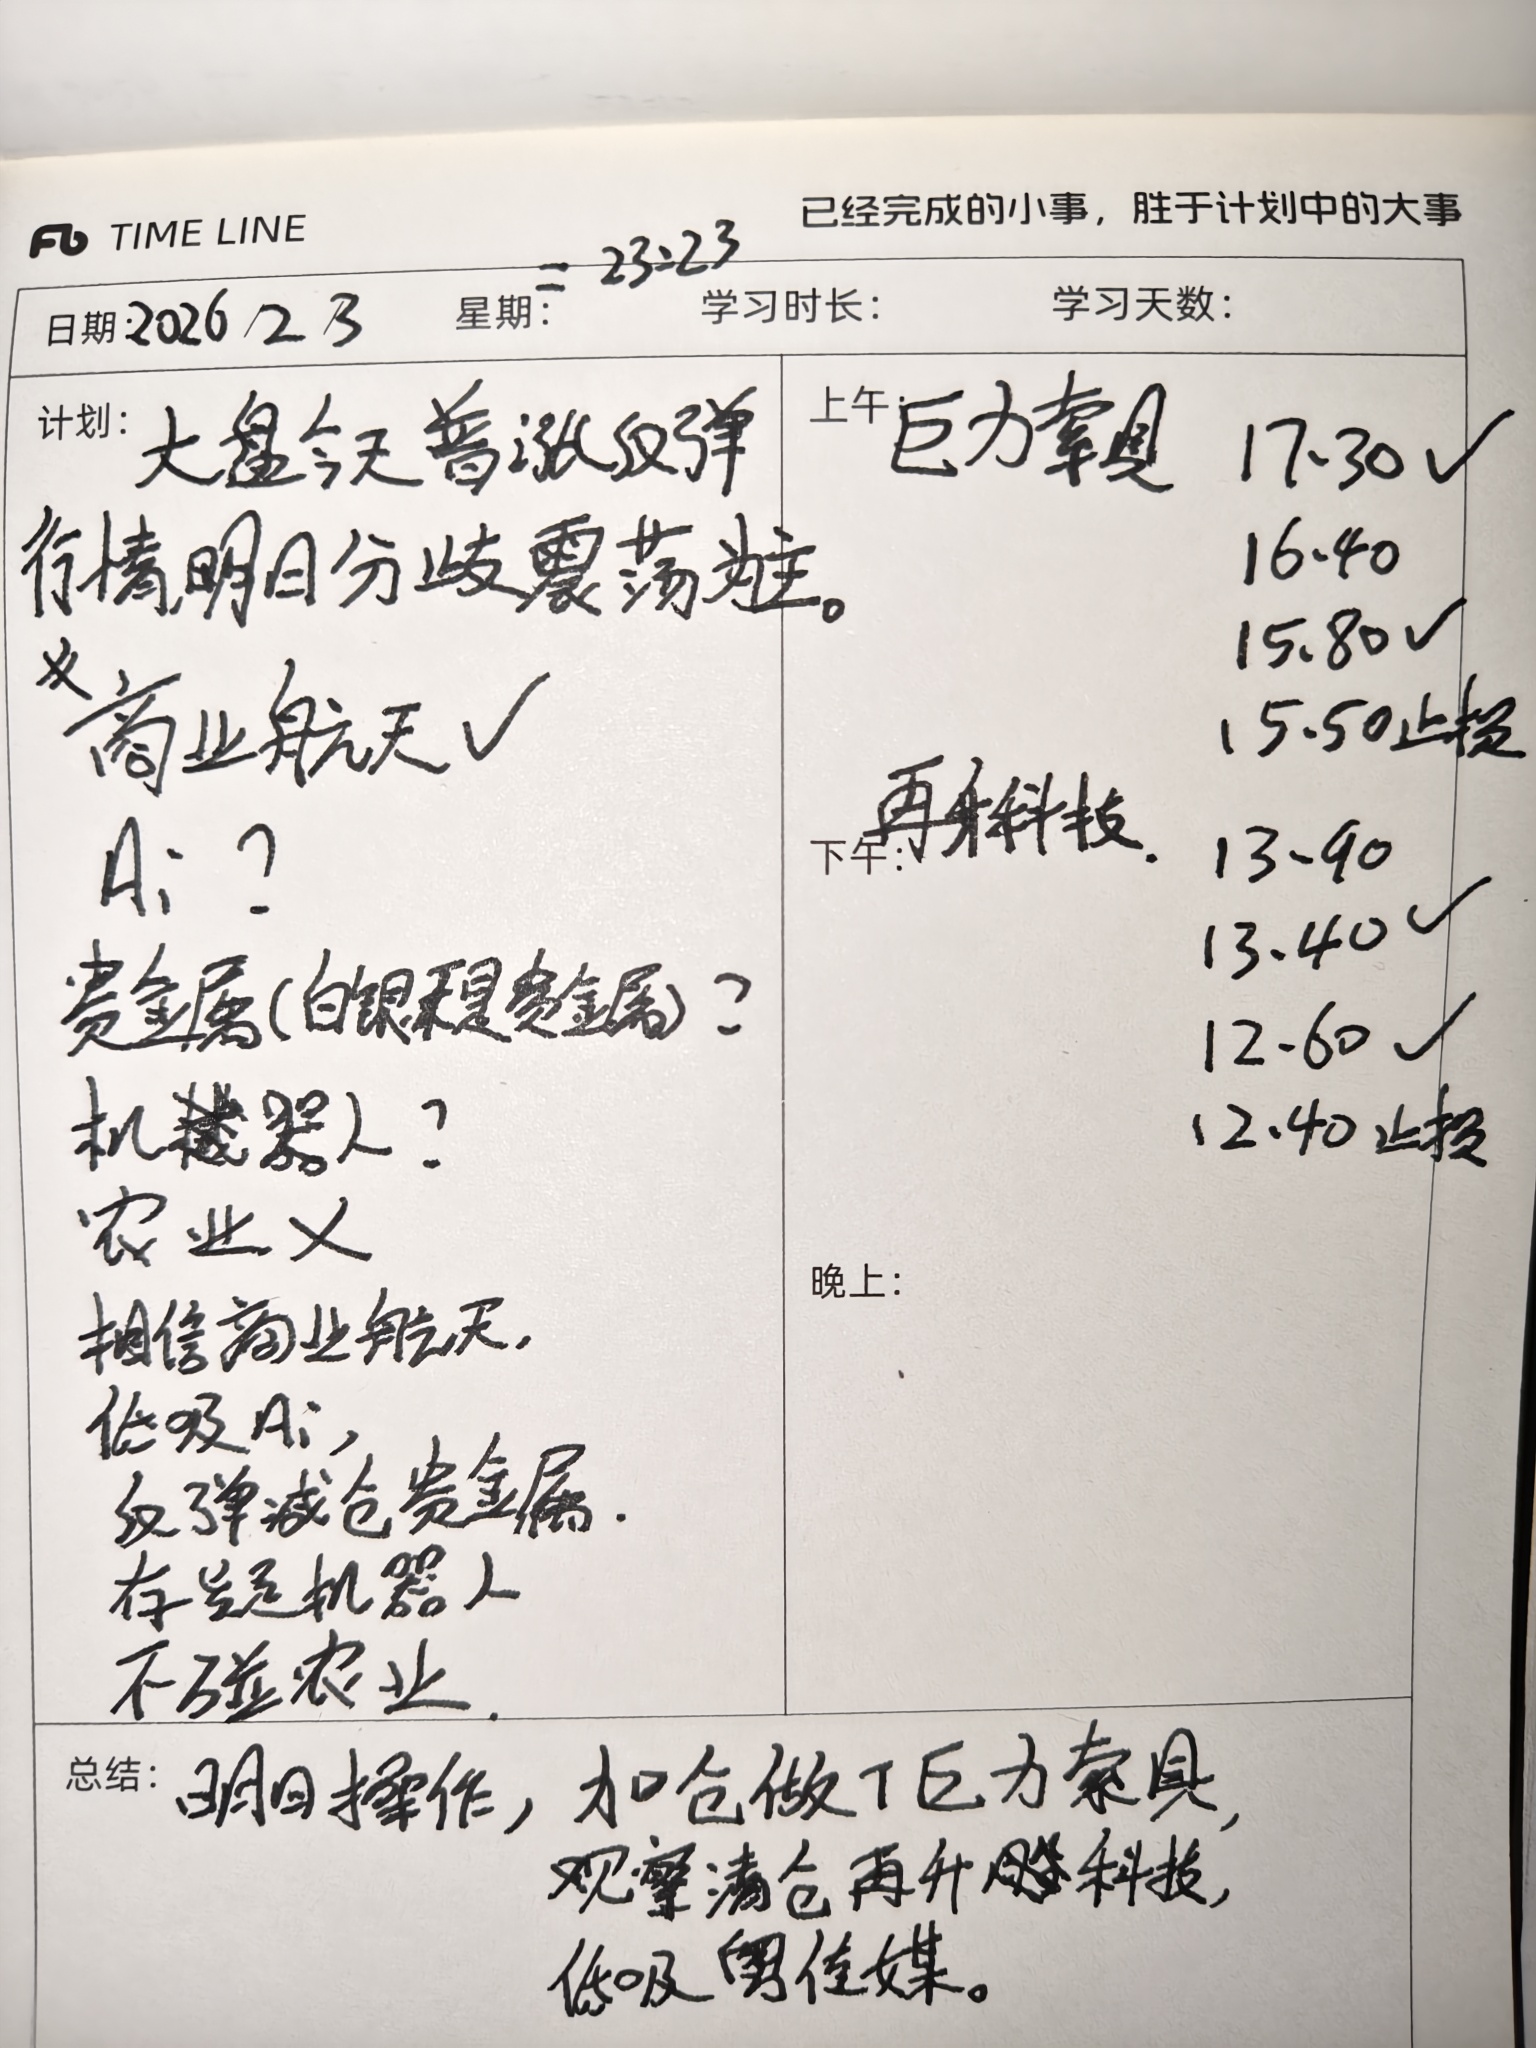 Fb TIME LINE
已经完成的小事，胜于计划中的大事
日期:2026/2/3 星期:二 23:23 学习时长: 学习天数:
计划: 大盘今天普涨反弹
行情,明日分歧震荡为主。
商业航天✓
Ai ?
贵金属(白银不是贵金属)?
机器人?
农业×
相信商业航天,
低吸Ai,
反弹减仓贵金属.
存疑机器人
不碰农业.
上午: 巨力索具 17.30✓
16.40
15.80✓
15.50止损
下午: 再升科技. 13.90
13.40✓
12.60✓
12.40止损
晚上:
总结: 明日操作, 加仓做T巨力索具,
观察清仓再升科技,
低吸传媒。